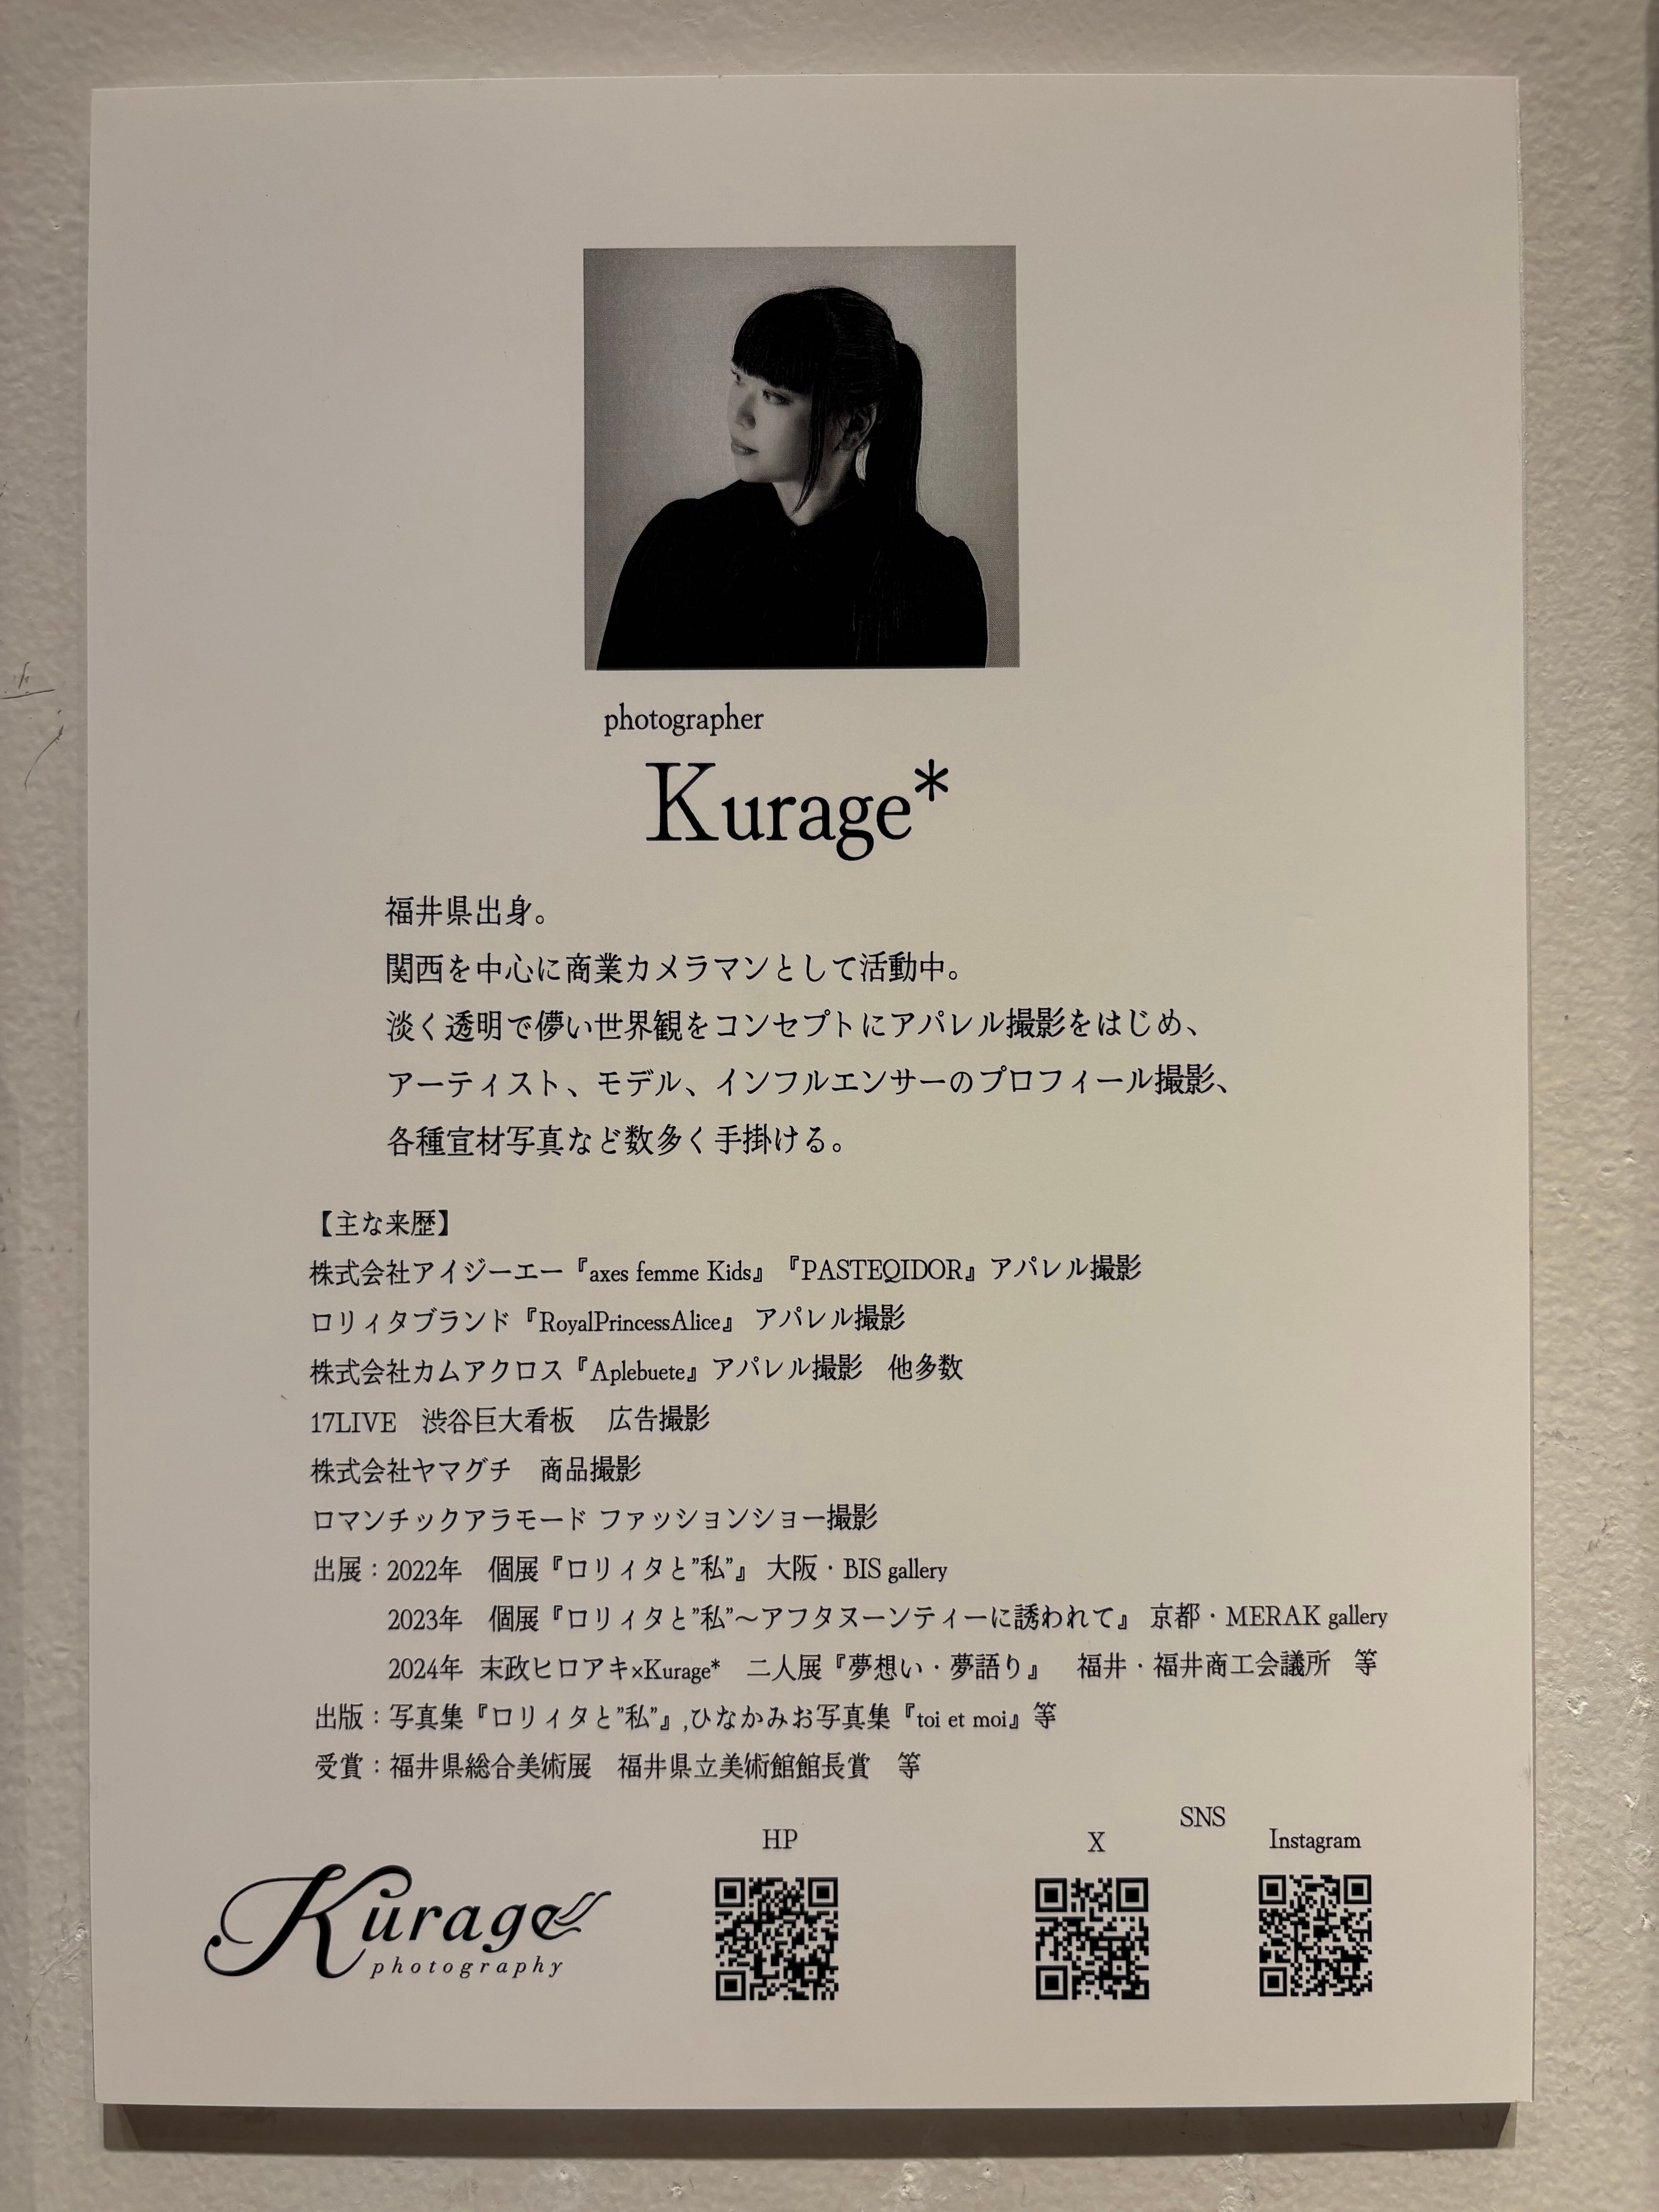 photographer
Kurage*
福井県出身。
関西を中心に商業カメラマンとして活動中。
淡く透明で儚い世界観をコンセプトにアパレル撮影をはじめ、
アーティスト、モデル、インフルエンサーのプロフィール撮影、
各種宣材写真など数多く手掛ける。
【主な来歴】
株式会社アイジーエー『axes femme Kids』『PASTEQIDOR』アパレル撮影
ロリィタブランド『RoyalPrincessAlice』 アパレル撮影
株式会社カムアクロス『Aplebuete』アパレル撮影　他多数
17LIVE　渋谷巨大看板　広告撮影
株式会社ヤマグチ　商品撮影
ロマンチックアラモード ファッションショー撮影
出展：2022年　個展『ロリィタと”私”』 大阪・BIS gallery
2023年　個展『ロリィタと”私”～アフタヌーンティーに誘われて』 京都・MERAK gallery
2024年 末政ヒロアキ×Kurage*　二人展『夢想い・夢語り』　福井・福井商工会議所　等
出版：写真集『ロリィタと”私”』,ひなかみお写真集『toi et moi』等
受賞：福井県総合美術展　福井県立美術館館長賞　等
SNS
HP X Instagram
Kurage
photography